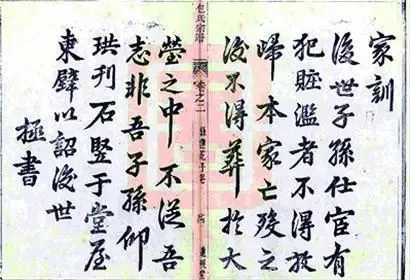 家訓
後世子孫仕官有
犯贓濫者不得放
歸本家亡殁之
後不得葬於大
包氏宗譜
卷之二
塋之中不從吾
志非吾子孫仰
珙刊石竪于堂屋
東壁以詔後世
拯書